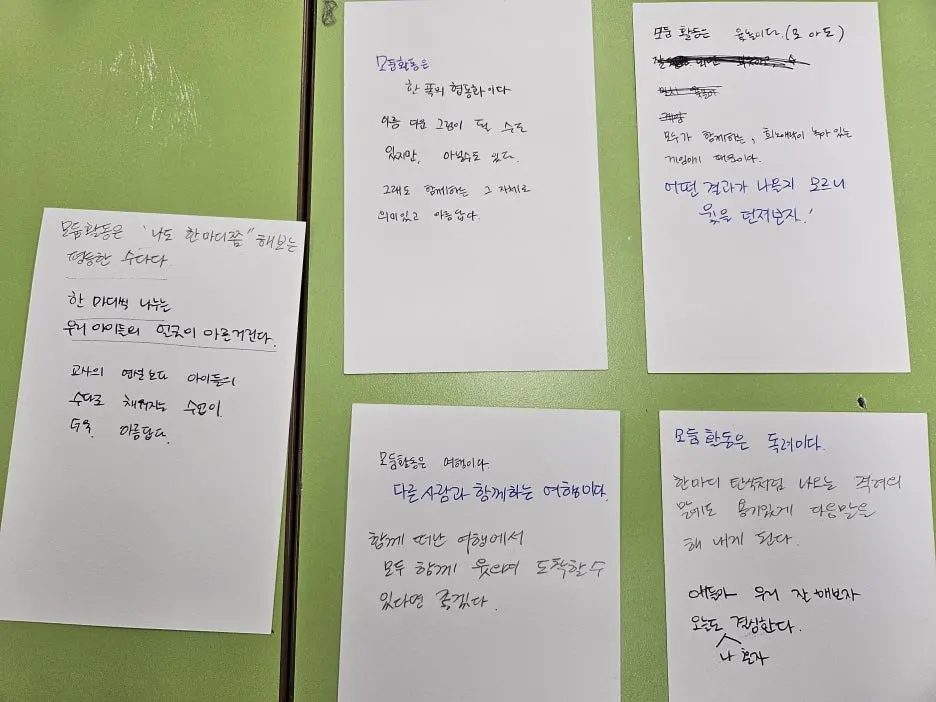 모둠활동은 "나도 한마디쯤" 해보는
평등한 수다다.
한 마디씩 나누는
우리 아이들의 언굿이 아른거린다.
교사의 연설보다 아이들의
수다로 채워지는 수업이
더욱 아름답다.
모둠활동은
한 폭의 협동화이다
아름다운 그림이 될 수도
있지만, 아닐수도 있다.
그래도 함께하는 그 자체로
의미있고 아름답다.
모둠 활동은 윷놀이다. (모 아 도)
모두가 함께하는, 희노애락이 녹아 있는
게임이기 때문이다.
어떤 결과가 나올지 모르니
윷을 던져보자!
모둠활동은 여행이다.
다른 사람과 함께하는 여행이다.
함께 떠난 여행에서
모두 함께 웃으며 도착할 수
있다면 좋겠다.
모둠 활동은 독려이다.
한마디 탄식처럼 나오는 격려의
말에도 용기있게 다음말을
해 내게 된다.
얘들아 우리 잘 해보자
오늘도 결심한다.
나 혼자